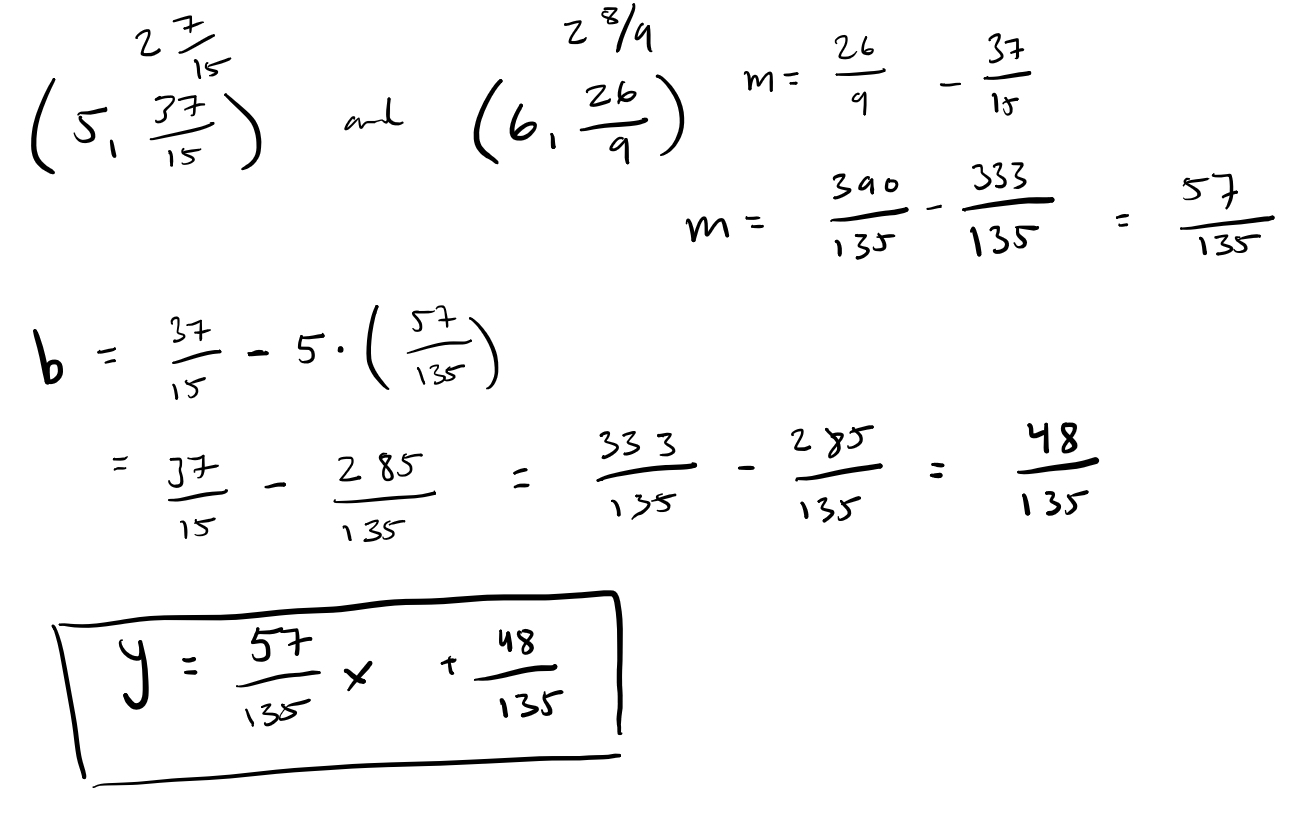 2 7/15 2 8/9
(5, 37/15) and (6, 26/9) m = 26/9 - 37/15
m = 390/135 - 333/135 = 57/135
b = 37/15 - 5 · (57/135)
= 37/15 - 285/135 = 333/135 - 285/135 = 48/135
y = 57/135 x + 48/135